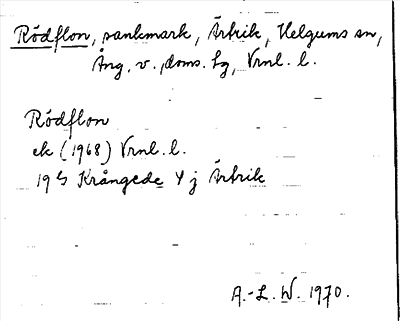 Rödflon, sankmark, Ärtrik, Helgums sn,
Ång. v., doms. lg, Vrnl. l.
Rödflon
ek (1968) Vrnl. l.
19 Krångede Y j Ärtrik
A.-L. W. 1970.